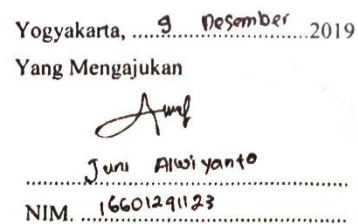 Yogyakarta, .....9 Desember.......2019
Yang Mengajukan
Juni Alwi yanto
NIM. 16601241123